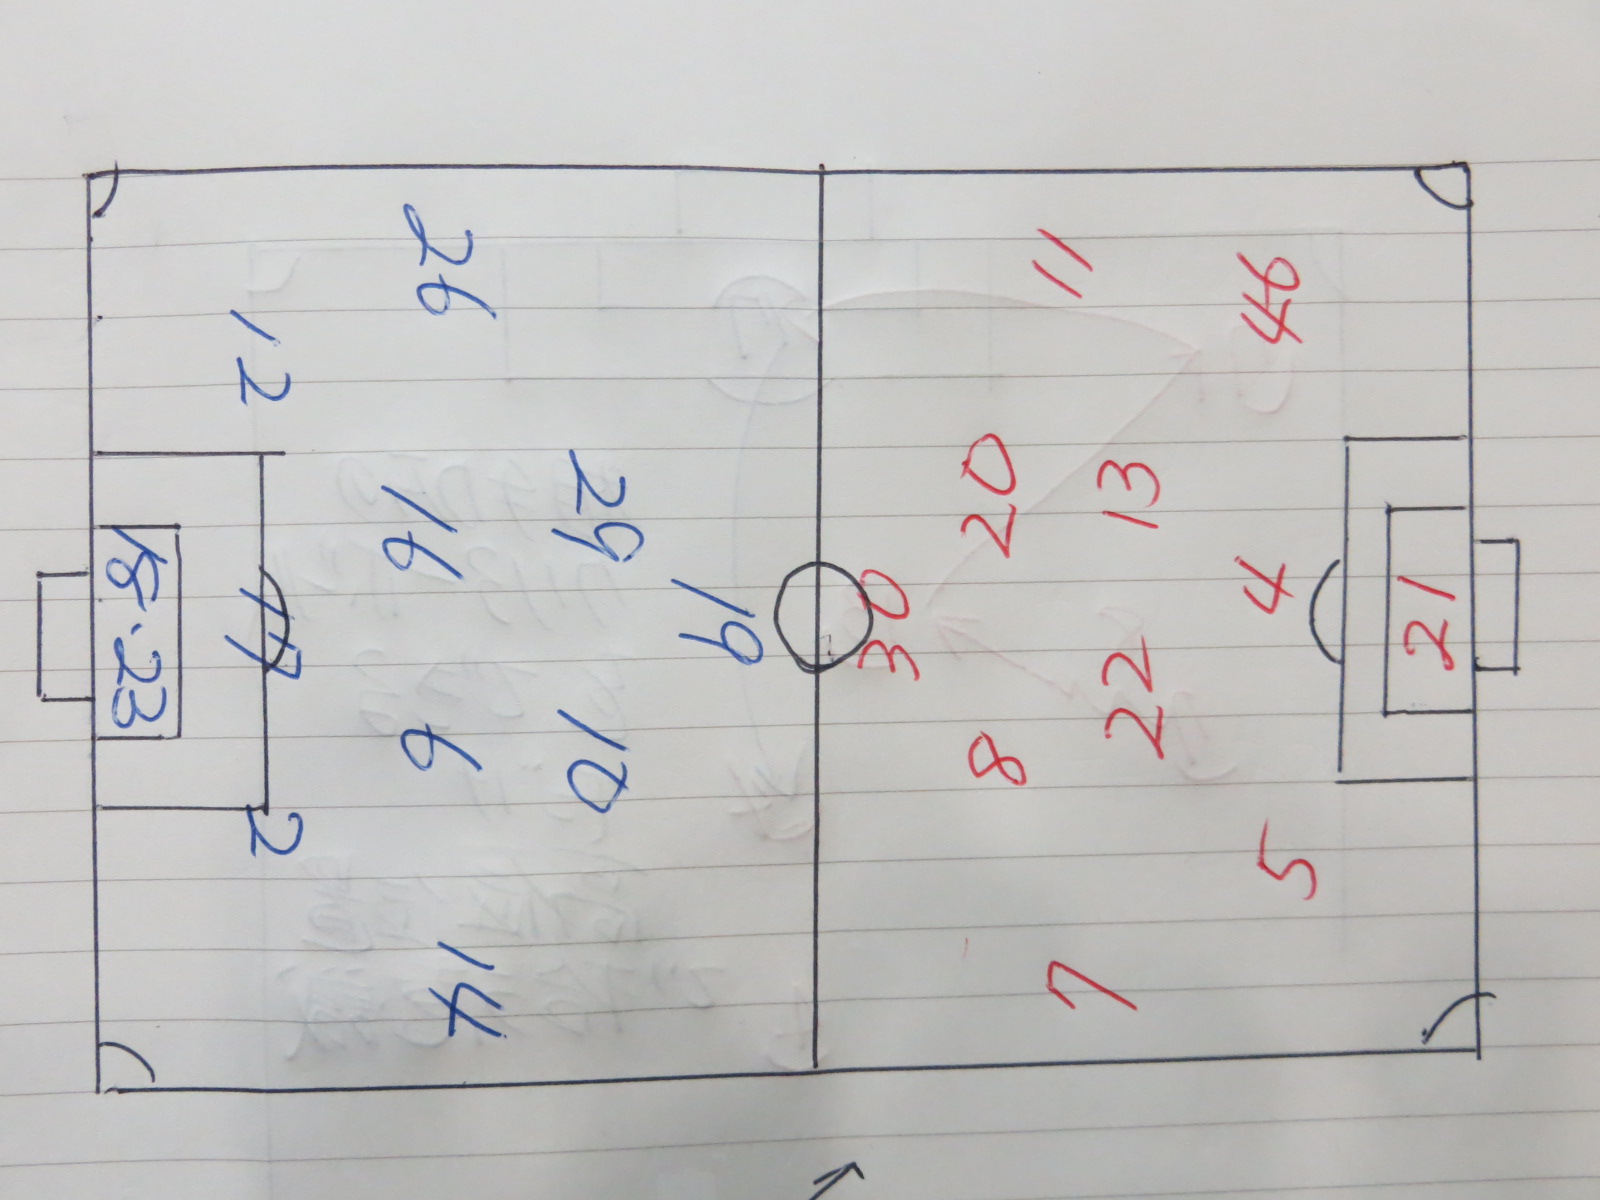 26
12
29
16
19
18·23
10
6
2
14
11
46
20
13
4
30
21
22
8
5
7